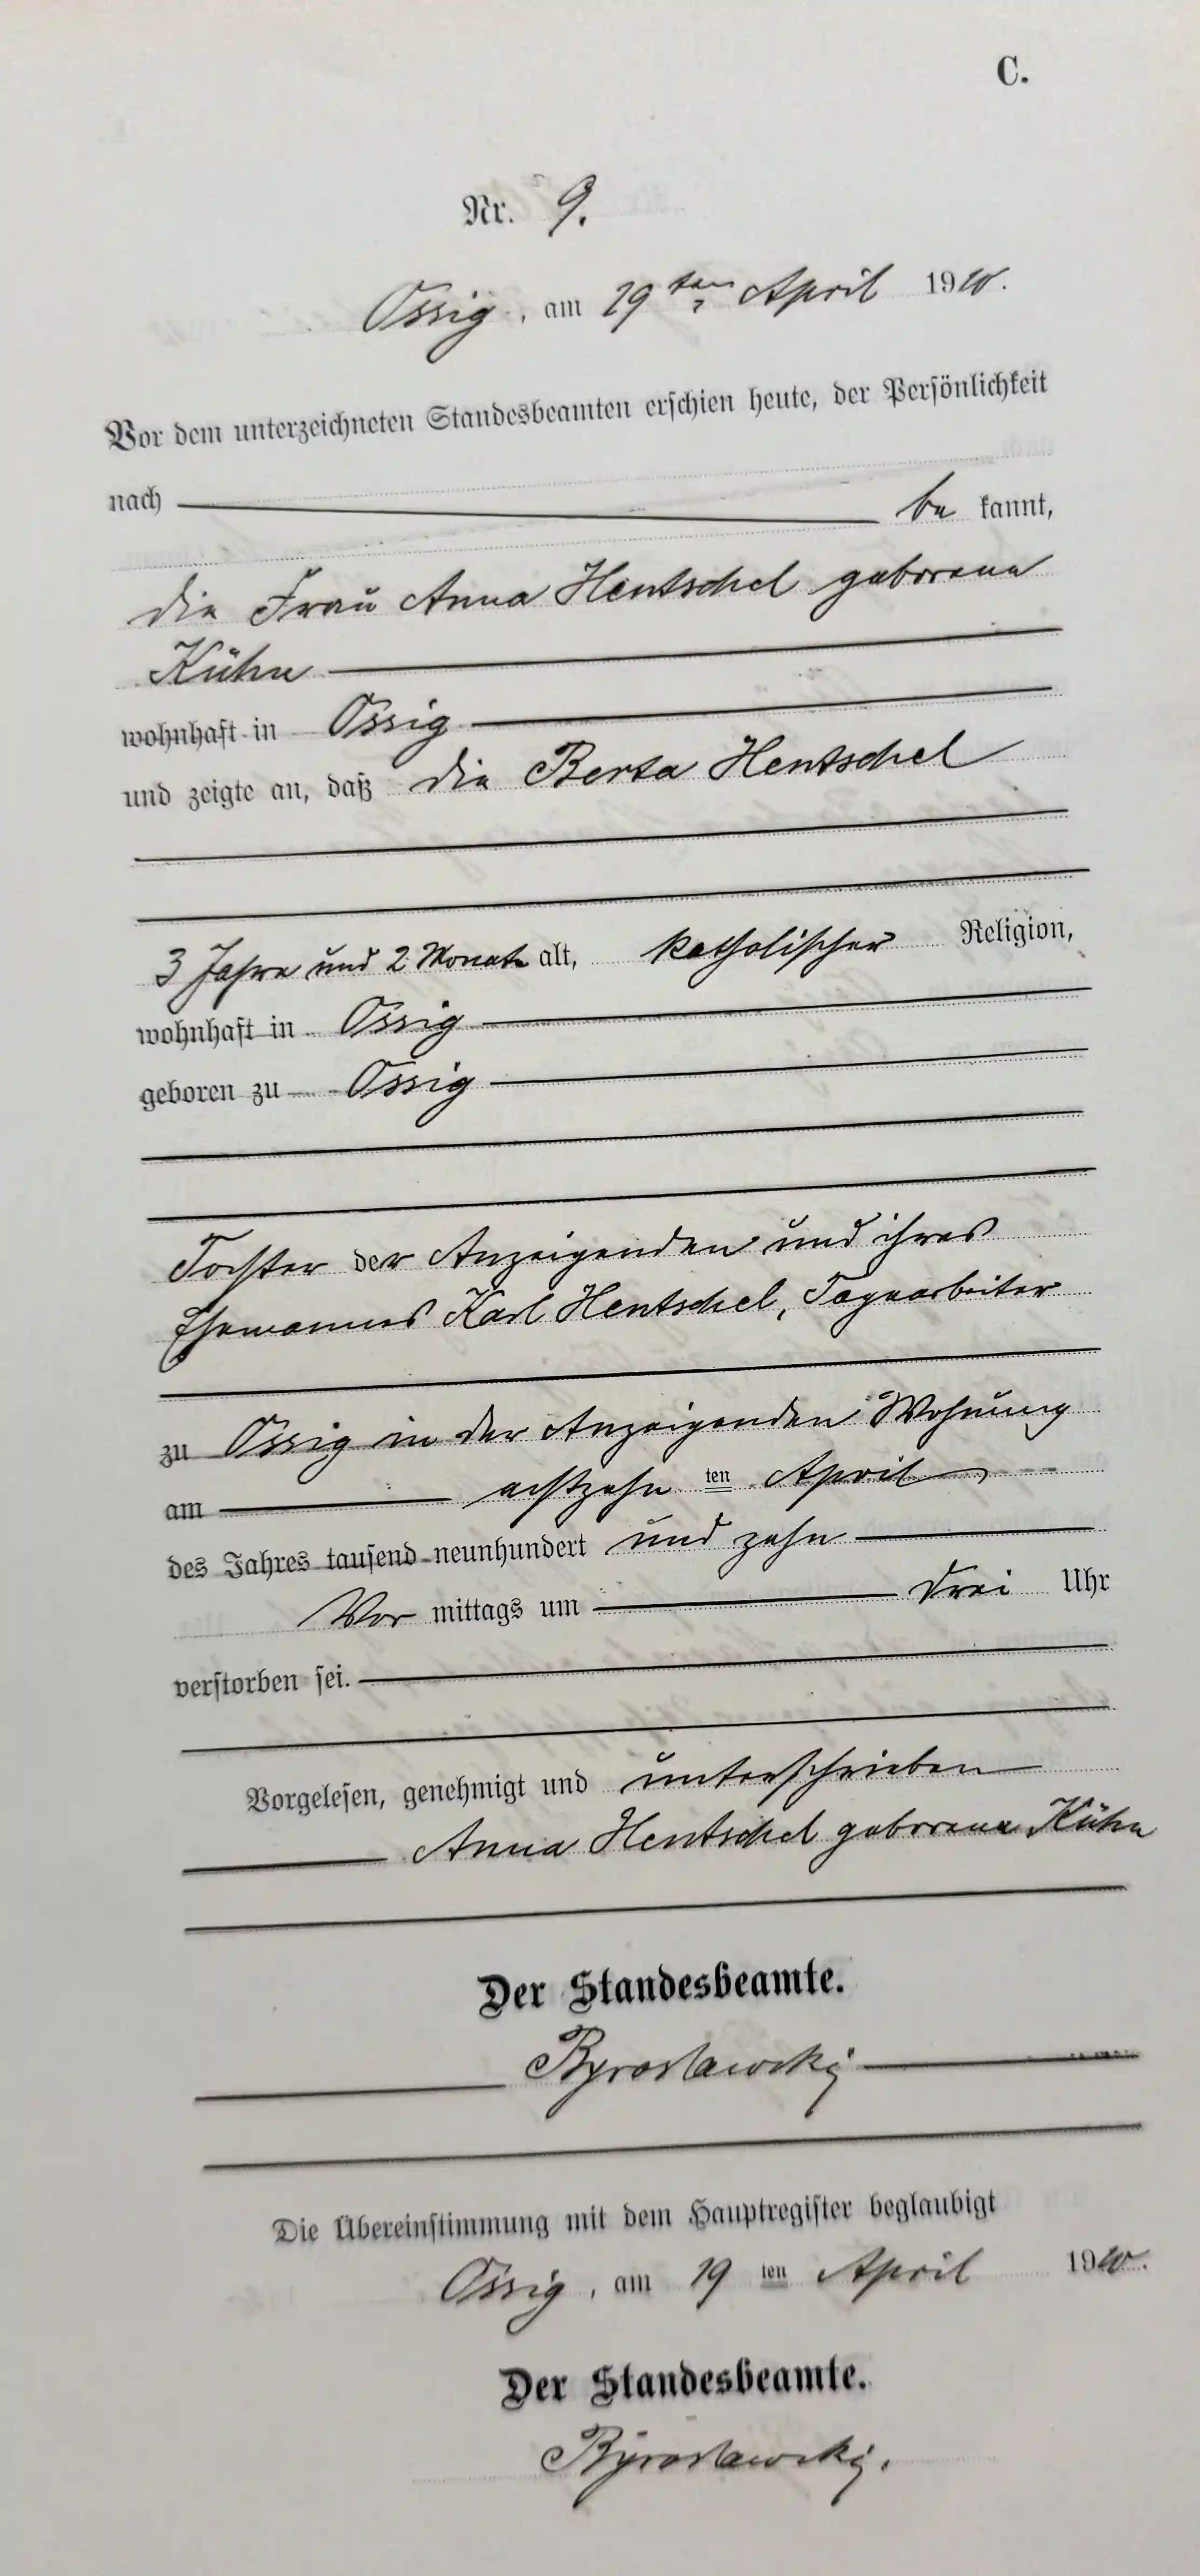 C.
Nr. 9.
Ossig, am 19ten April 1910.
Vor dem unterzeichneten Standesbeamten erschien heute, der Persönlichkeit
nach be kannt,
die Frau Anna Hentschel geborene
Kühn
wohnhaft in Ossig
und zeigte an, daß die Berta Hentschel
3 Jahre und 2 Monate alt, katholischer Religion,
wohnhaft in Ossig
geboren zu Ossig
Tochter der Anzeigenden und ihres
Ehemannes Karl Hentschel, Tagearbeiter
zu Ossig in der Anzeigenden Wohnung
am achtzehn ten April
des Jahres tausend neunhundert und zehn
Vor mittags um drei Uhr
verstorben sei.
Vorgelesen, genehmigt und unterschrieben
Anna Hentschel geborene Kühn
Der Standesbeamte.
Die Übereinstimmung mit dem Hauptregister beglaubigt
Ossig, am 19 ten April 1910.
Der Standesbeamte.